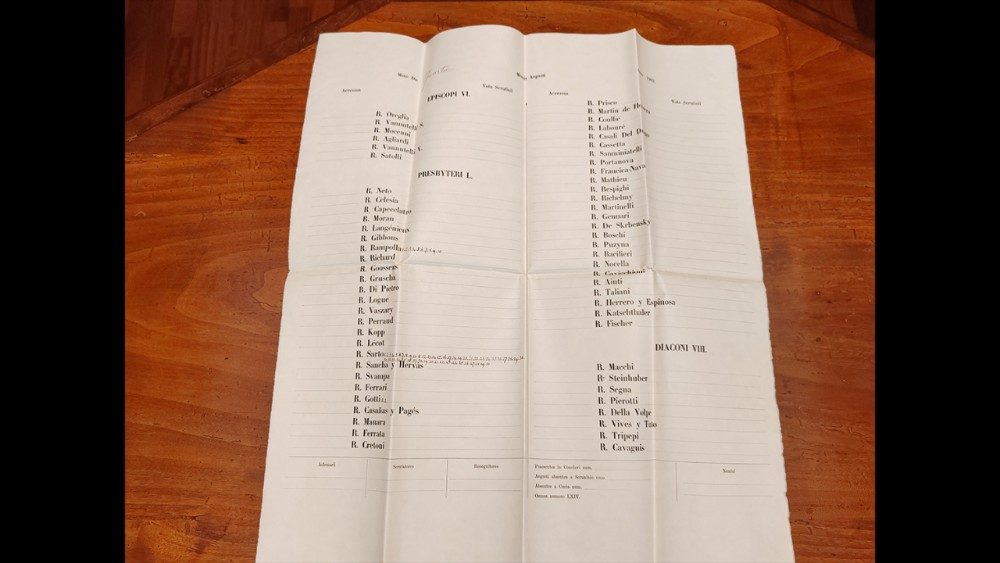 Accessus
Vota Scrutinii
Accessus
Vota Scrutinii
EPISCOPI VI.
R. Oreglia
R. Vannutelli S.
R. Mocenni
R. Agliardi
R. Vannutelli V.
R. Satolli
PRESBYTERI L.
R. Neto
R. Celesia
R. Capecelatro
R. Moran
R. Langénieux
R. Gibbons
R. Rampolla
R. Richard
R. Goossens
R. Gruscha
R. Di Pietro
R. Logue
R. Vaszary
R. Perraud
R. Kopp
R. Lécot
R. Sarto
R. Sancha y Hervás
R. Svampa
R. Ferrari
R. Gotti
R. Casañas y Pagés
R. Manara
R. Ferrata
R. Cretoni
R. Prisco
R. Martin de Herrera
R. Coullié
R. Labouré
R. Casali Del Drago
R. Cassetta
R. Sanminiatelli
R. Portanova
R. Francica-Nava
R. Mathieu
R. Respighi
R. Richelmy
R. Martinelli
R. Gennari
R. De Skrbensky
R. Boschi
R. Puzyna
R. Bacilieri
R. Nocella
R. Cavicchioni
R. Aiuti
R. Taliani
R. Herrero y Espinosa
R. Katschthaler
R. Fischer
DIACONI VIII.
R. Macchi
R. Steinhuber
R. Segna
R. Pierotti
R. Della Volpe
R. Vives y Tuto
R. Tripepi
R. Cavagnis
Infirmari
Scrutatores
Recognitores
Praesentes in Conclavi num.
Aegroti absentes a Scrutinio num.
Absentes a Curia num.
Omnes numero LXIV.
Nomini